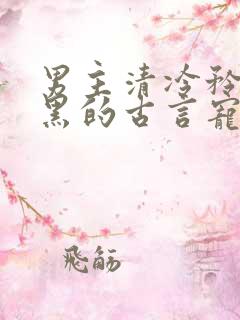 男主清冷矜
黑的古言宠
飛觞